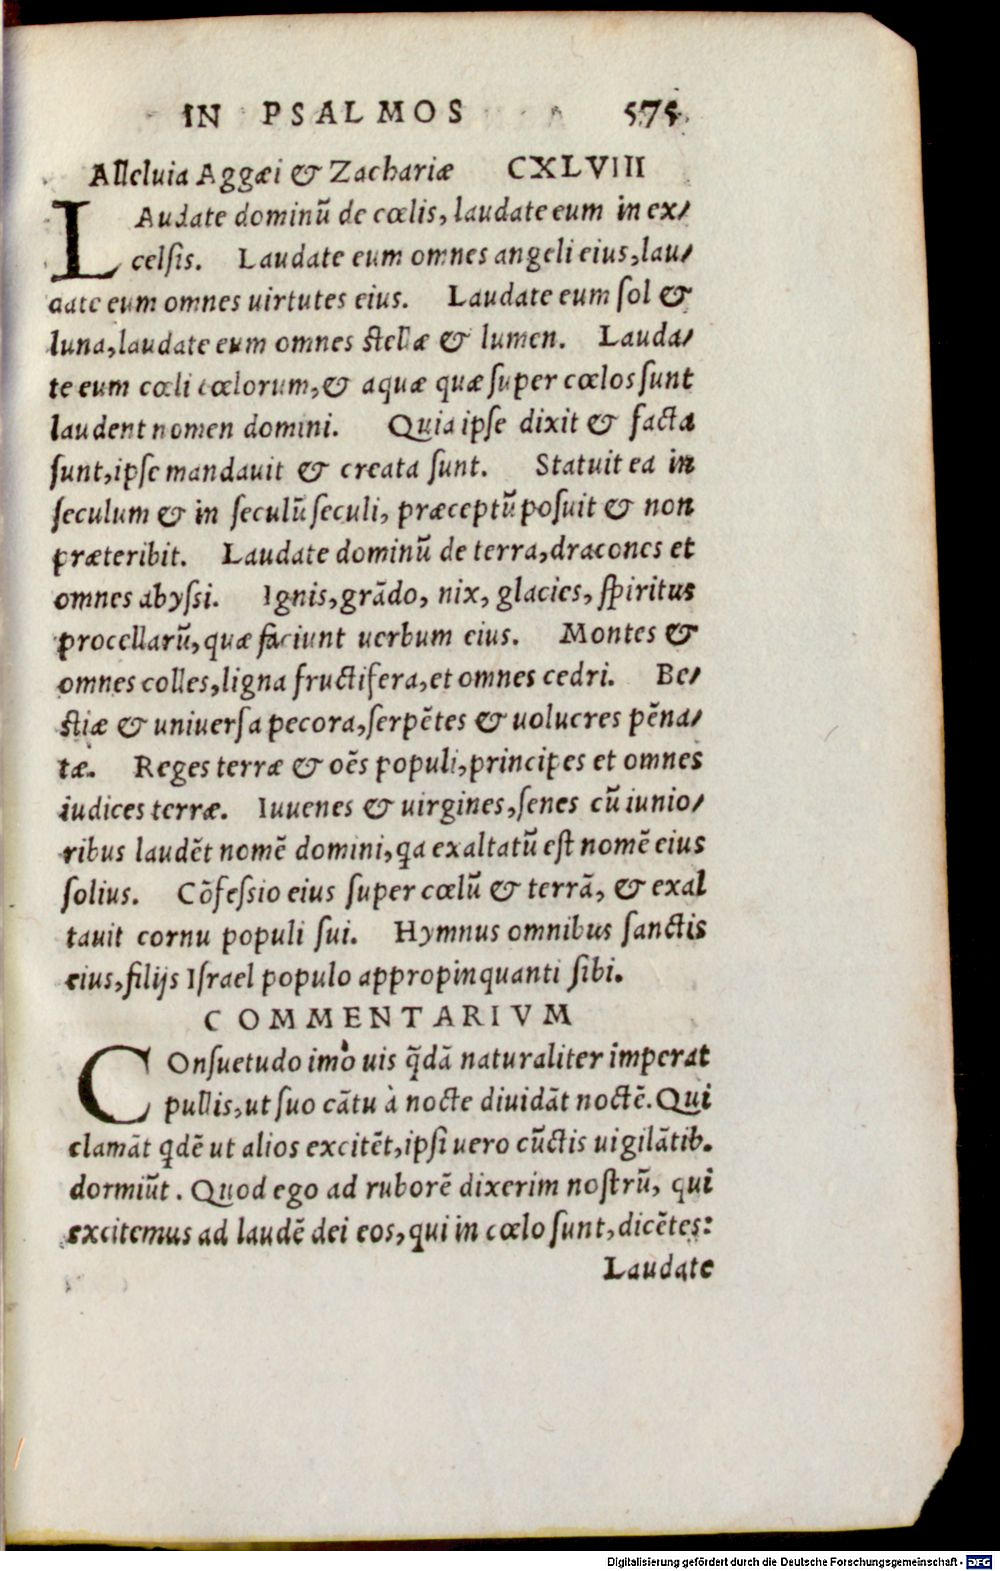 IN PSALMOS 575
Alleluia Aggæi & Zachariæ CXLVIII
LAudate dominū de cœlis, laudate eum in ex/
celsis. Laudate eum omnes angeli eius, lau/
date eum omnes uirtutes eius. Laudate eum sol &
luna, laudate eum omnes stellæ & lumen. Lauda/
te eum cœli cœlorum, & aquæ quæ super cœlos sunt
laudent nomen domini. Quia ipse dixit & facta
sunt, ipse mandauit & creata sunt. Statuit ea in
seculum & in seculū seculi, præceptū posuit & non
præteribit. Laudate dominū de terra, dracones et
omnes abyssi. Ignis, grādo, nix, glacies, spiritus
procellarū, quæ faciunt uerbum eius. Montes &
omnes colles, ligna fructifera, et omnes cedri. Be/
stiæ & uniuersa pecora, serpētes & uolucres pēna/
tæ. Reges terræ & oēs populi, principes et omnes
iudices terræ. Iuuenes & uirgines, senes cū iunio/
ribus laudēt nomē domini, qa exaltatū est nomē eius
solius. Cōfessio eius super cœlū & terrā, & exal
tauit cornu populi sui. Hymnus omnibus sanctis
eius, filijs Israel populo appropinquanti sibi.
COMMENTARIVM
COnsuetudo imo uis q̄dā naturaliter imperat
pullis, ut suo cātu à nocte diuidāt noctē. Qui
clamāt qdē ut alios excitēt, ipsi uero cūctis uigilātib.
dormiūt. Quod ego ad ruborē dixerim nostrū, qui
excitemus ad laudē dei eos, qui in cœlo sunt, dicētes:
Laudate
Digitalisierung gefördert durch die Deutsche Forschungsgemeinschaft - DFG